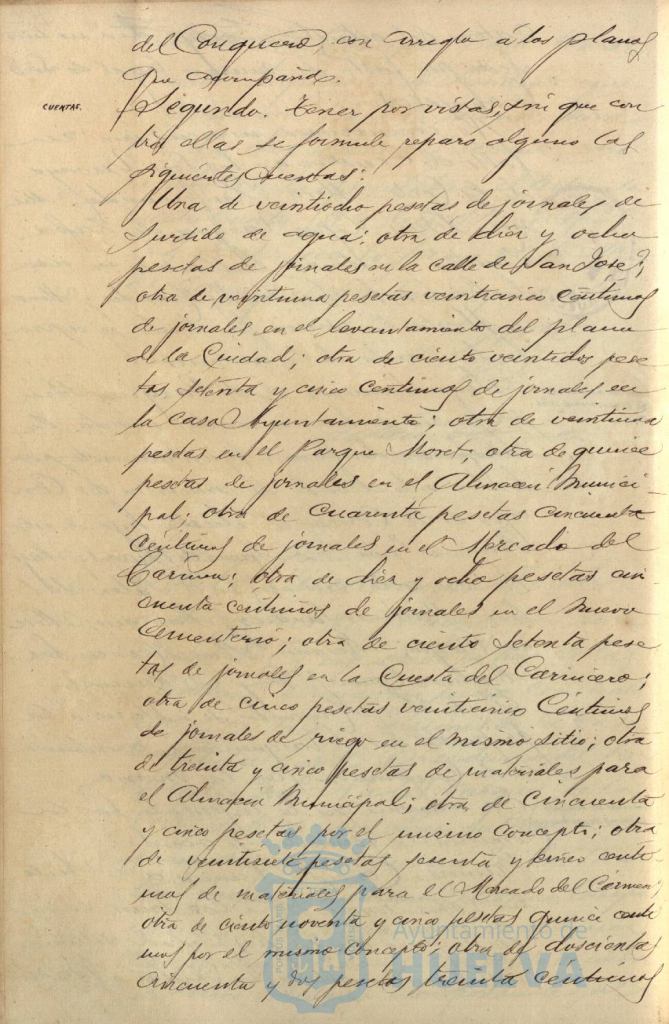 del Conquero, con arreglo á los planos
que acompaña.
CUENTAS.
Segundo. tener por vistas, sin que con
tra ellas se formule reparo alguno las
siguientes cuentas:
Una de veintiocho pesetas de jornales de
surtido de agua; otra de diez y ocho
pesetas de jornales en la calle de San José;
otra de veintiuna pesetas veinticinco céntimos
de jornales en el levantamiento del plano
de la Ciudad; otra de ciento veintidos pese
tas setenta y cinco centimos de jornales en
la casa Ayuntamiento; otra de veintiuna
pesetas en el Parque Moret; otra de quince
pesetas de jornales en el Almacén Munici-
pal; otra de cuarenta pesetas cincuenta
céntimos de jornales en el Mercado del
Carmen; otra de diez y ocho pesetas cin
cuenta céntimos de jornales en el nuevo
Cementerio; otra de ciento setenta pese
tas de jornales en la Cuesta del Carnicero;
otra de cinco pesetas veinticinco Céntimos
de jornales de riego en el mismo sitio; otra
de treinta y cinco pesetas de materiales para
el Almacén Municipal; otra de cincuenta
y cinco pesetas por el mismo concepto; otra
de veintisiete pesetas sesenta y cinco centi
mos de materiales para el Mercado del Cármen;
otra de ciento noventa y cinco pesetas quince centi
mos por el mismo concepto; otra de doscientas
cincuenta y dos pesetas treinta centimos
Ayuntamiento de
HUELVA